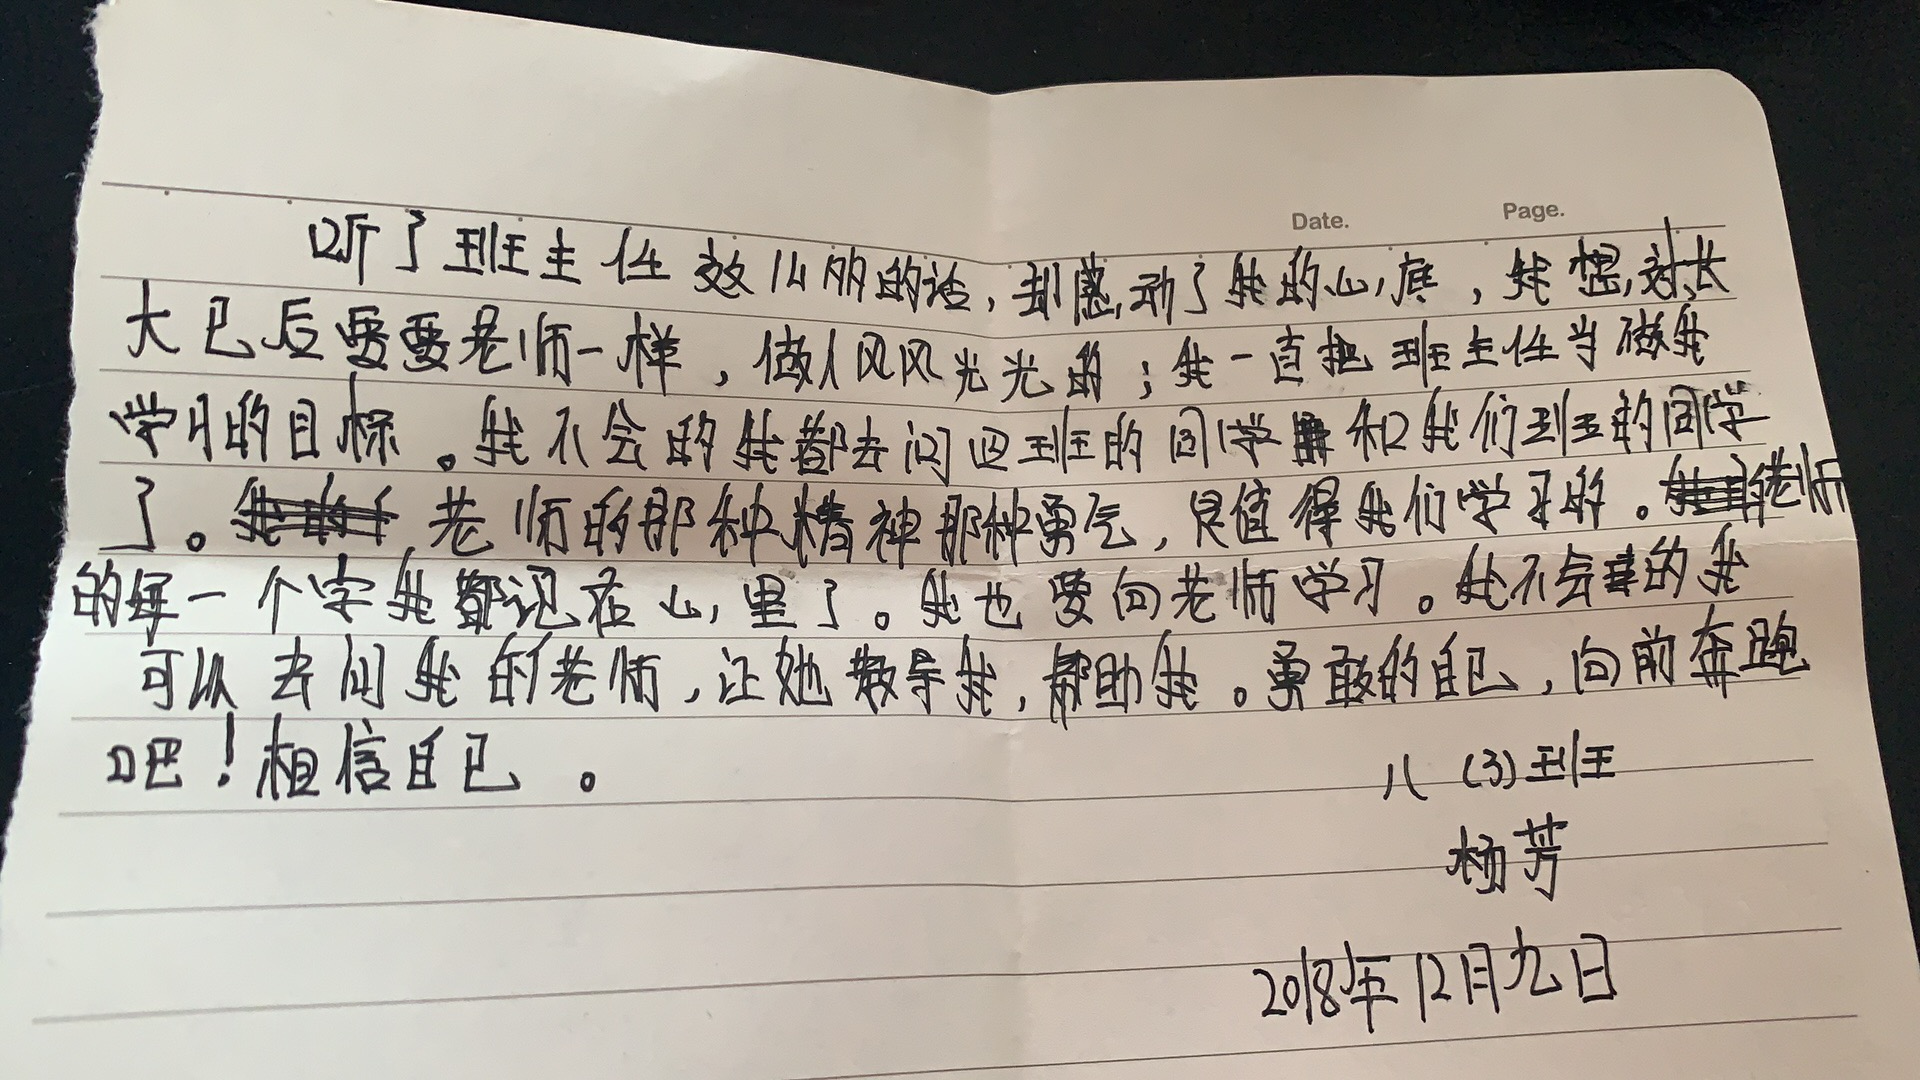 Date. Page.
听了班主任敖儿丽的话，却感动了我的心底，我想，对长
大已后要要老师一样，做人风风光光的；我一直把班主任当做我
学习的目标。我不会的我都去问四班的同学和我们班的同学
了。老师的那种精神那种勇气，很值得我们学习的。老师
的每一个字我都记在心里了。我也要向老师学习。我不会的我
可以去问我的老师，让她教导我，帮助我。勇敢的自己，向前奔跑
吧！相信自己。
八（3）班
杨芳
2018年12月九日